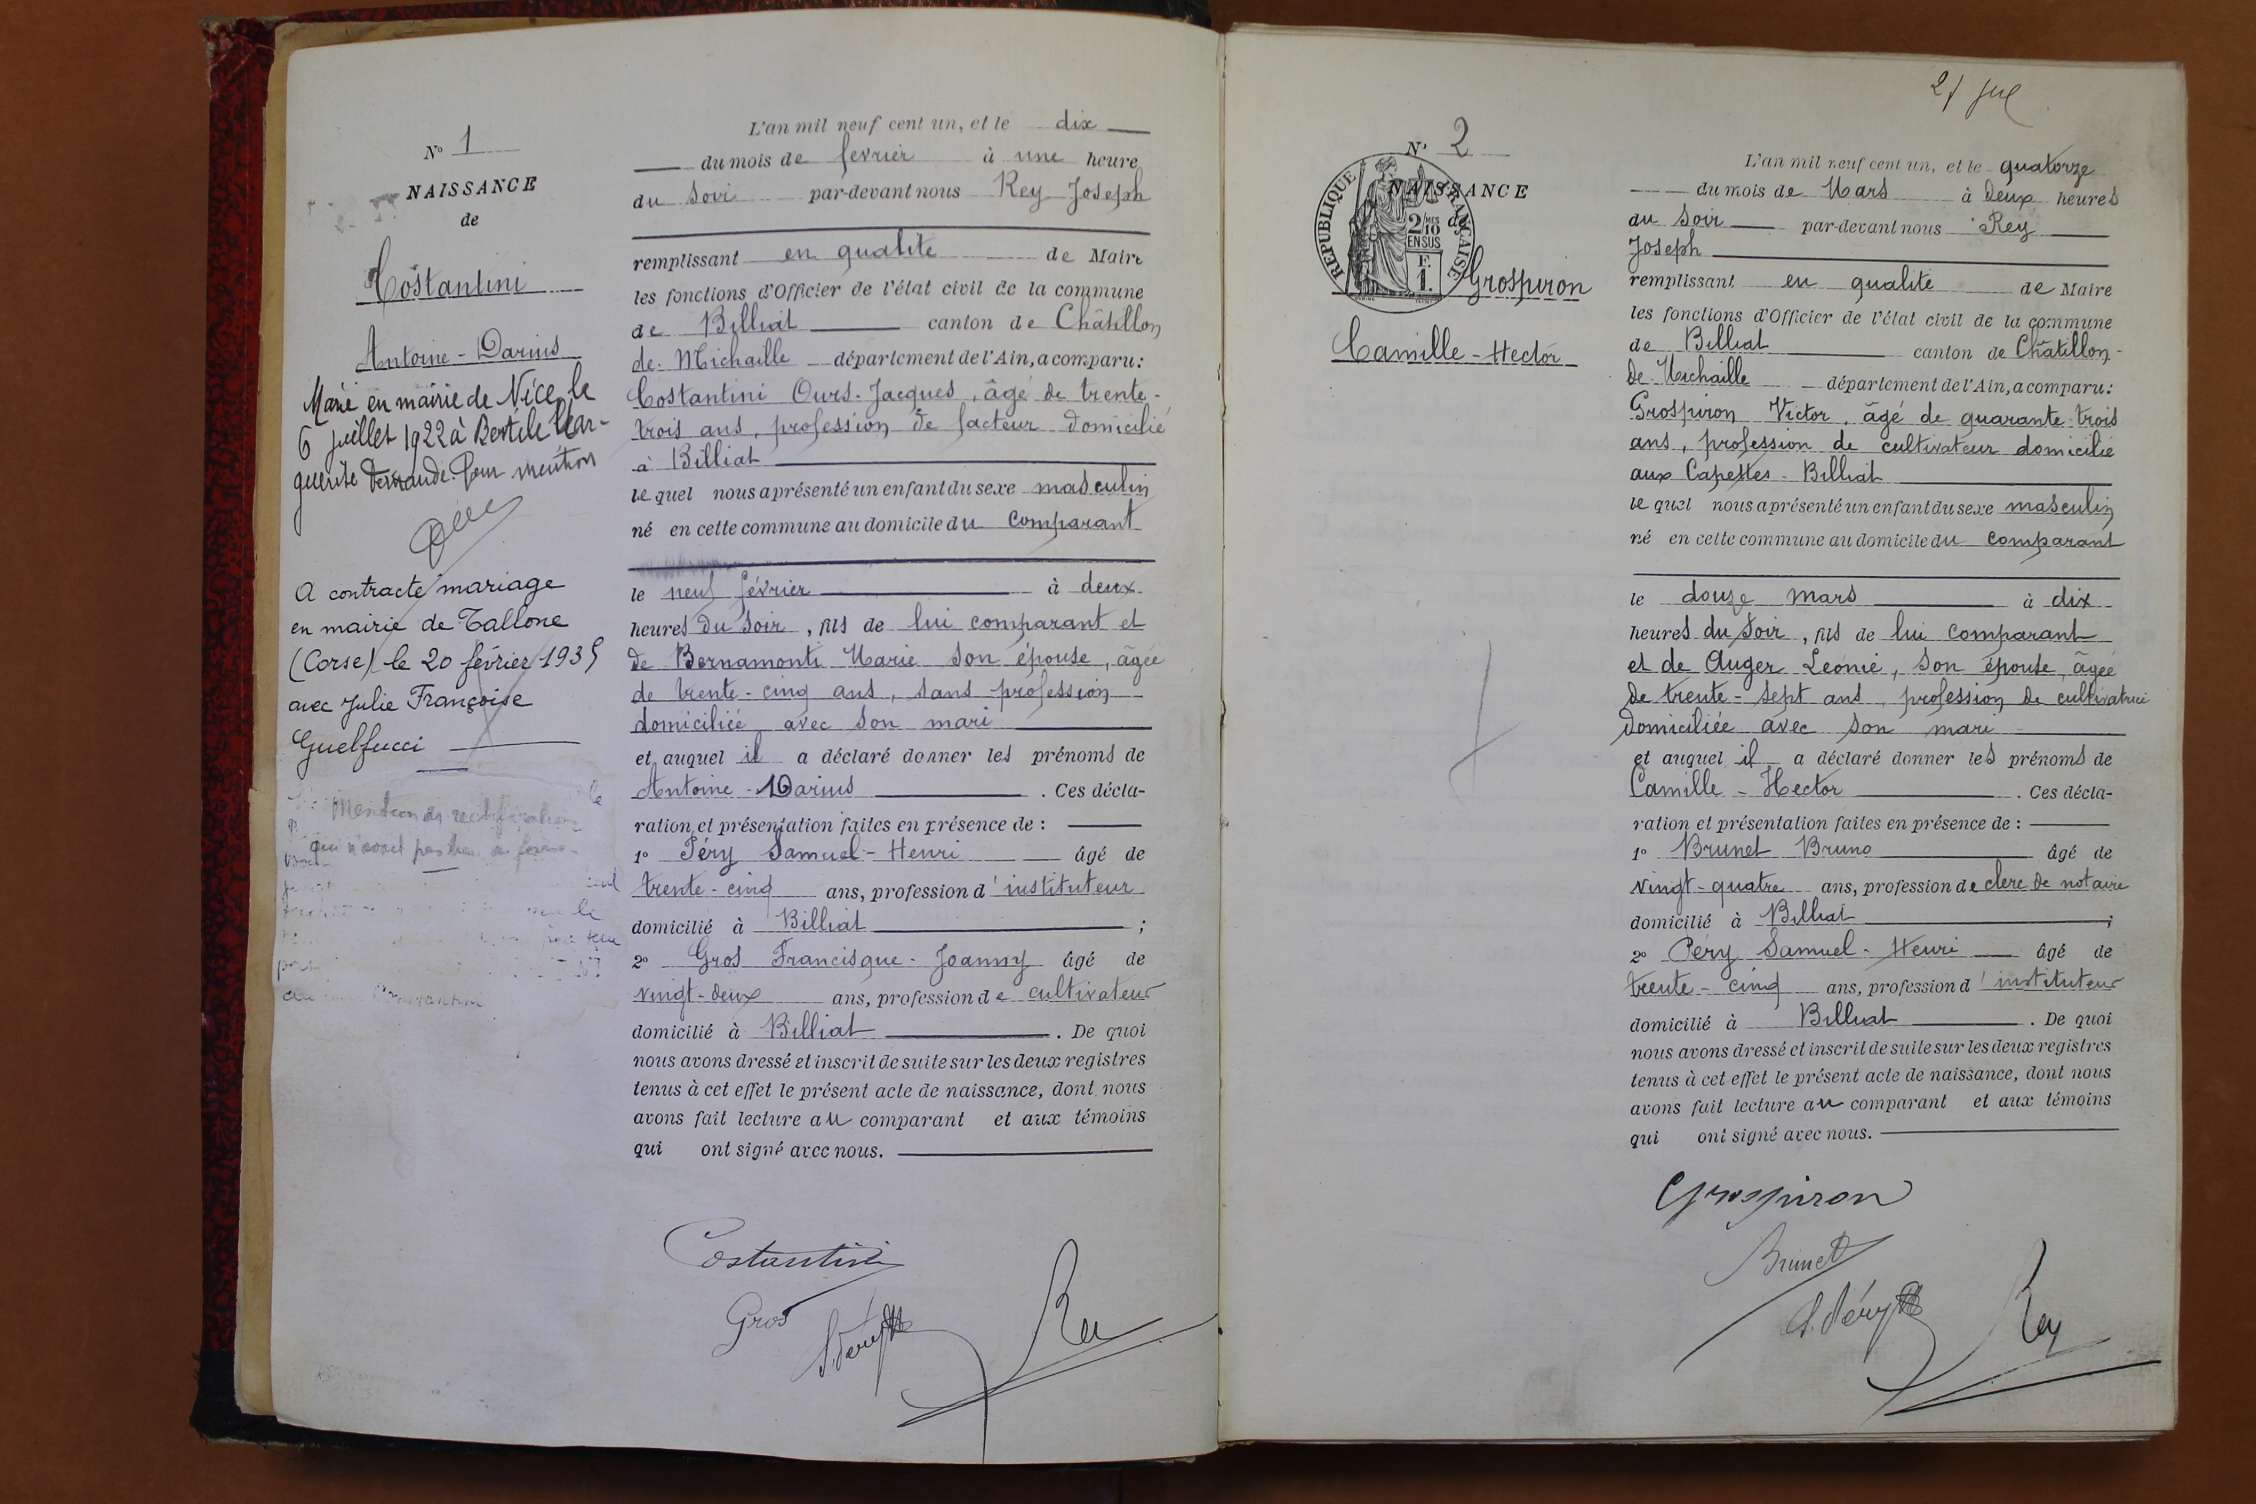 N° 1
NAISSANCE
de
Costantini
Antoine - Darius
Marié en mairie de Nice le
6 juillet 1922 à Bertile Mar-
guerite Pour mention
A contracté mariage
en mairie de Tallone
(Corse) le 20 février 1935
avec Julie Françoise
Guelfucci
Mention de rectification
qui n'avait pas lieu
Costantini
L'an mil neuf cent un, et le dix
du mois de fevrier à une heure
du soir par-devant nous Rey Joseph
remplissant en qualité de Maire
les fonctions d'Officier de l'état civil de la commune
de Billiat canton de Châtillon
de Michaille département de l'Ain, a comparu:
Costantini Ours-Jacques, âgé de trente-
trois ans, profession de facteur domicilié
à Billiat
le quel nous a présenté un enfant du sexe masculin
né en cette commune au domicile du comparant
le neuf février à deux
heures du soir, fils de lui comparant et
de Marie son épouse, âgée
de trente-cinq ans, sans profession
domiciliée avec son mari
et auquel il a déclaré donner les prénoms de
Antoine-Darius. Ces décla-
ration et présentation faites en présence de :
1° Péry Samuel-Henri âgé de
trente-cinq ans, profession d'instituteur
domicilié à Billiat ;
2° Gros Francisque-Joanny âgé de
vingt-deux ans, profession de cultivateur
domicilié à Billiat. De quoi
nous avons dressé et inscrit de suite sur les deux registres
tenus à cet effet le présent acte de naissance, dont nous
avons fait lecture au comparant et aux témoins
qui ont signé avec nous.
Costantini
Gros
S. Péry
Rey
21 jul
N° 2
NAISSANCE
de
RÉPUBLIQUE FRANÇAISE
2/10 MES
EN SUS
F.
1.
Grospiron
Camille-Hector
L'an mil neuf cent un, et le quatorze
du mois de Mars à deux heures
du soir par-devant nous Rey
Joseph
remplissant en qualité de Maire
les fonctions d'Officier de l'état civil de la commune
de Billiat canton de Châtillon-
de Michaille département de l'Ain, a comparu:
Grospiron Victor, âgé de quarante-trois
ans, profession de cultivateur domicilié
aux Capettes-Billiat
le quel nous a présenté un enfant du sexe masculin
né en cette commune au domicile du comparant
le douze mars à dix
heures du soir, fils de lui comparant
et de Auger Léonie, son épouse, âgée
de trente-sept ans, profession de cultivatrice
domiciliée avec son mari
et auquel il a déclaré donner les prénoms de
Camille-Hector. Ces décla-
ration et présentation faites en présence de :
1° Brunet Bruno âgé de
vingt-quatre ans, profession de clerc de notaire
domicilié à Billiat ;
2° Péry Samuel-Henri âgé de
trente-cinq ans, profession d'instituteur
domicilié à Billiat. De quoi
nous avons dressé et inscrit de suite sur les deux registres
tenus à cet effet le présent acte de naissance, dont nous
avons fait lecture au comparant et aux témoins
qui ont signé avec nous.
Grospiron
Brunet
S. Péry
Rey